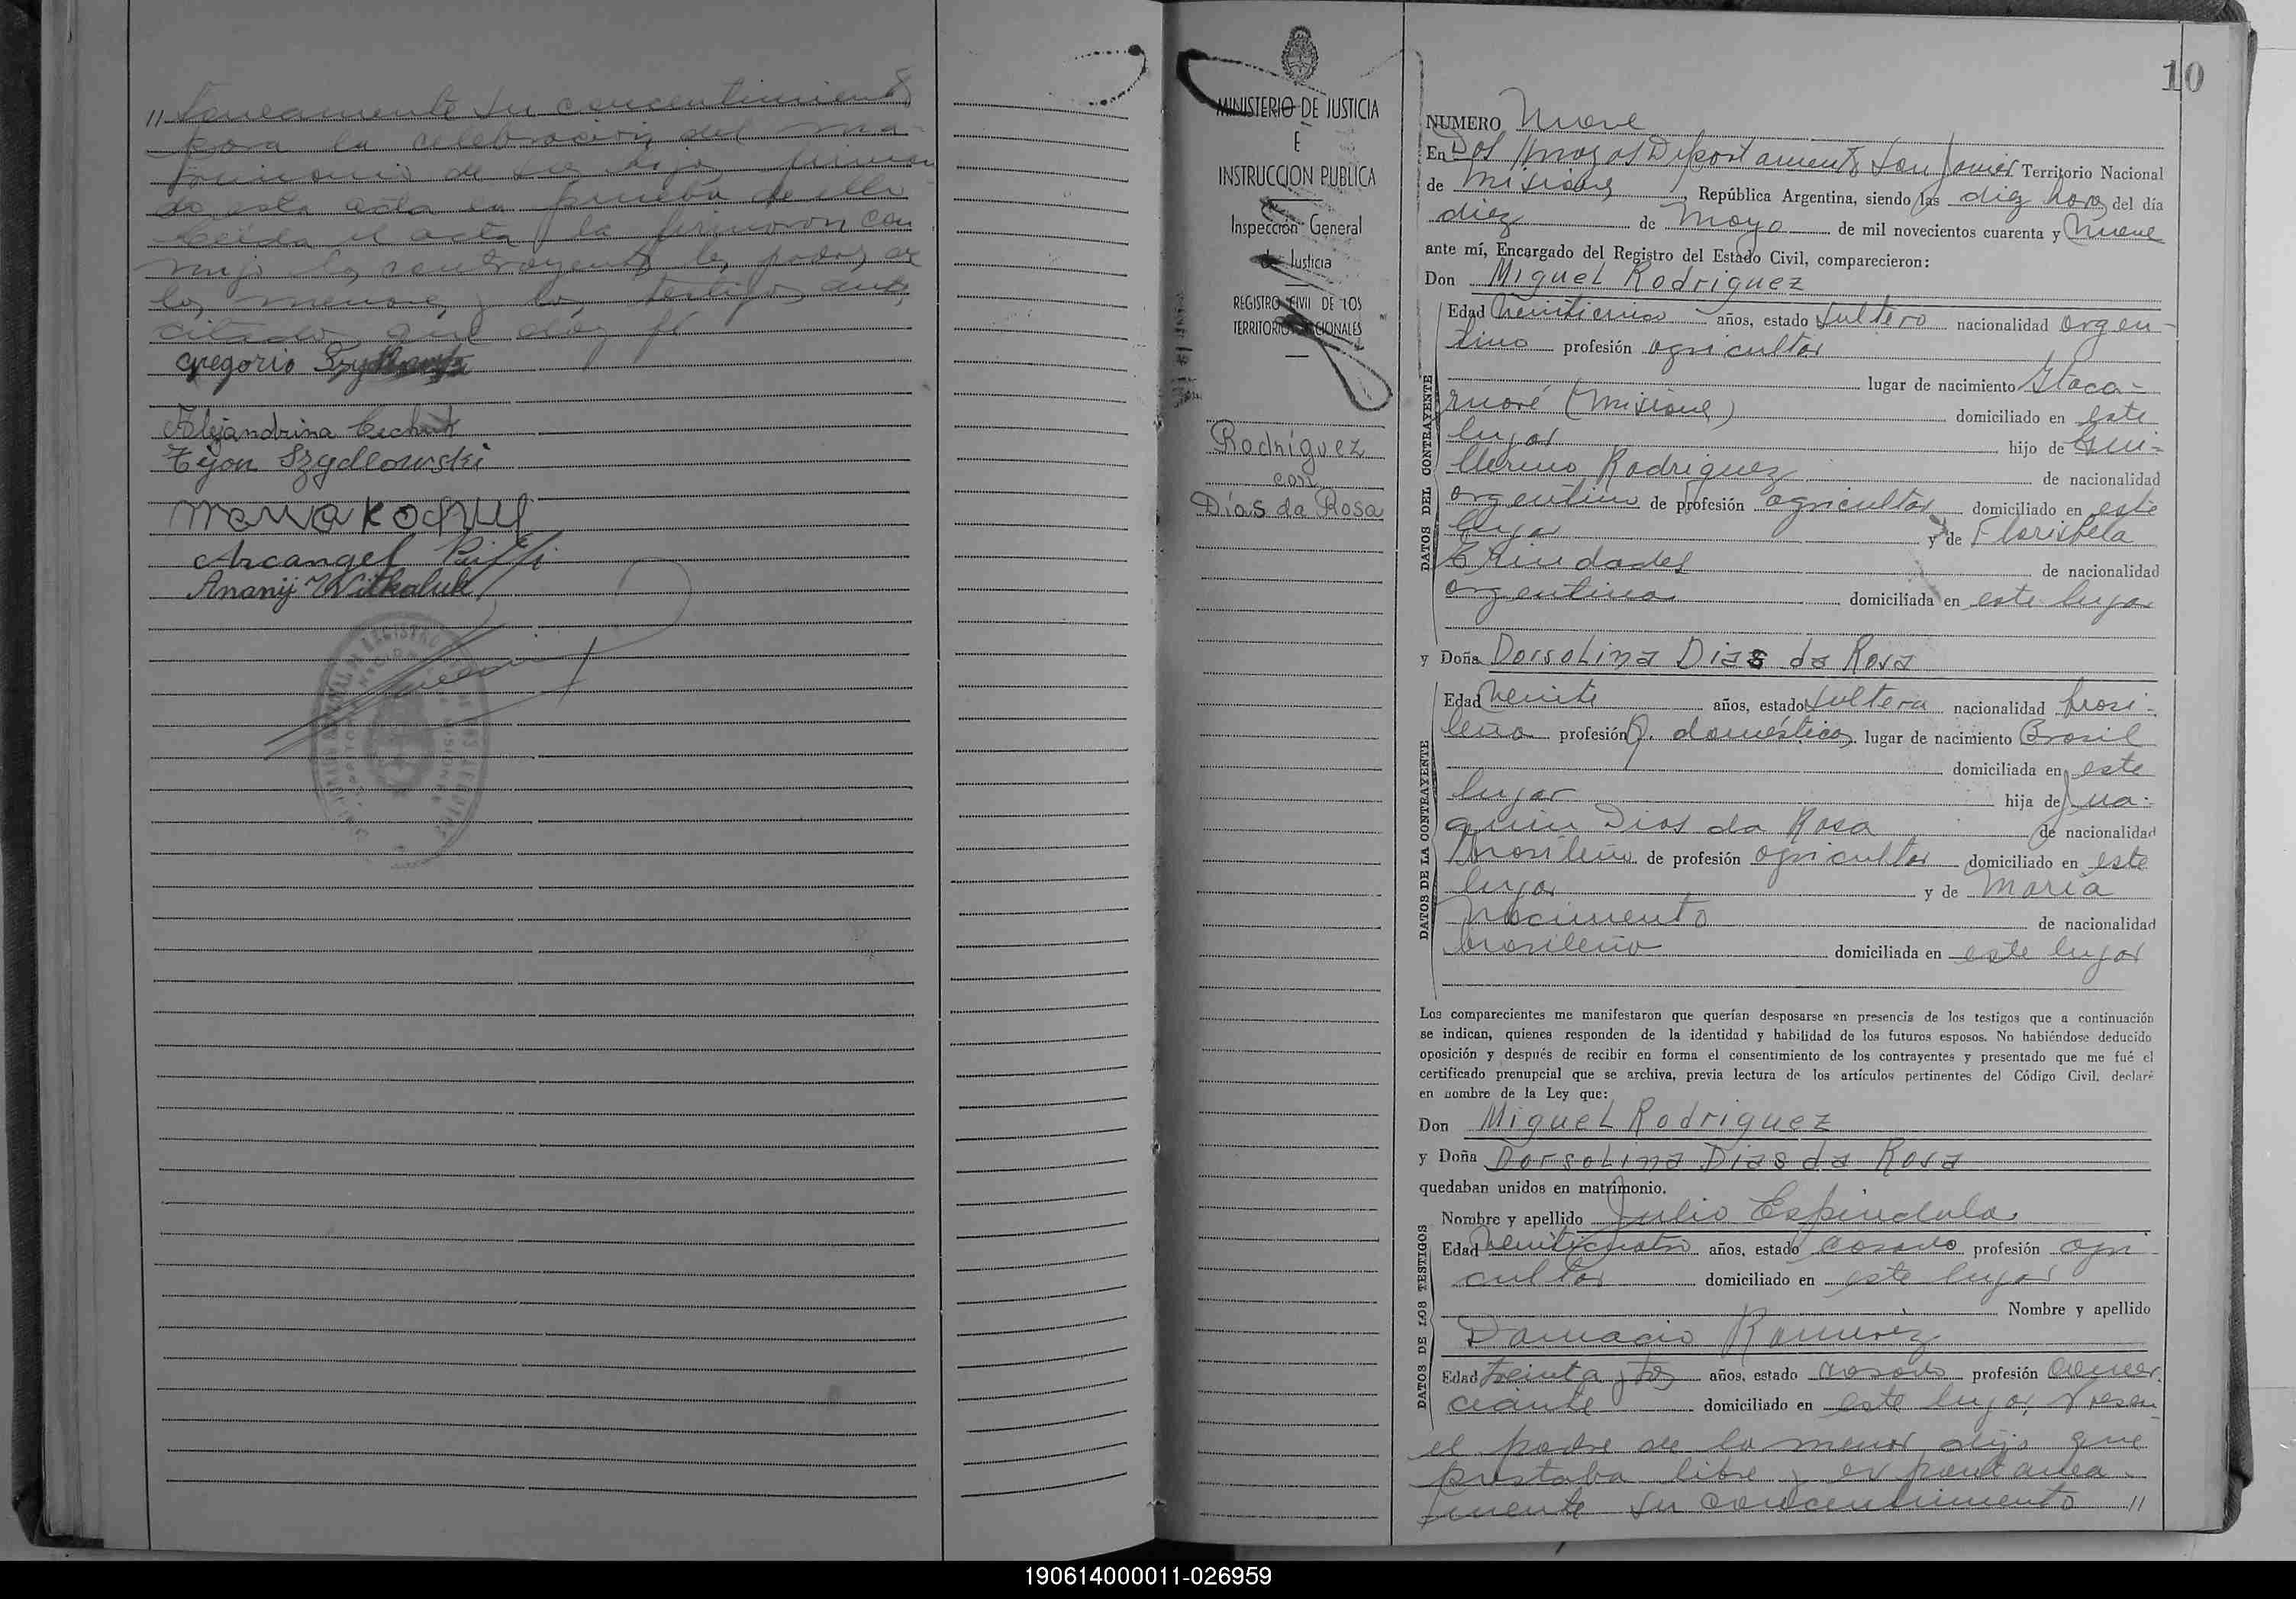 // taneamente su concentimiento
para la celebración del ma-
trimonio de su hijo firman
do esta acta en prueba de ello
Leida el acta la firmaron con
migo los contrayentes los padres de
los menores y los testigos ante
citados que doy fé
Gregorio
Alejandrina Cechuk
Tejon Szydlowski
Arcangel Piffi
Ananij Witkaluk
MINISTERIO DE JUSTICIA
E
INSTRUCCION PUBLICA
Inspección General
de Justicia
REGISTRO CIVIL DE LOS
TERRITORIOS NACIONALES
Rodríguez
con
Días da Rosa
10
NUMERO Nueve
En Dos Arroyos Departamento San Javier Territorio Nacional
de Misiones, República Argentina, siendo las diez horas del día
diez de Mayo de mil novecientos cuarenta y Nueve
ante mí, Encargado del Registro del Estado Civil, comparecieron:
Don Miguel Rodriguez
DATOS DEL CONTRAYENTE
Edad Veinticinco años, estado Soltero nacionalidad argen-
tino profesión agricultor
lugar de nacimiento Itaca-
ruaré (Misiones) domiciliado en este
lugar hijo de Gui-
llermo Rodriguez de nacionalidad
argentino de profesión agricultor domiciliado en este
lugar y de Florisbela
Trindades de nacionalidad
argentina domiciliada en este lugar
y Doña Dorsolina Dias da Rosa
DATOS DE LA CONTRAYENTE
Edad Veinte años, estado Soltera nacionalidad brasi-
leña profesión Q. domésticos lugar de nacimiento Brasil
domiciliada en este
lugar hija de Jua-
quin Dias da Rosa de nacionalidad
brasileño de profesión agricultor domiciliado en este
lugar y de María
Nacimento de nacionalidad
brasileña domiciliada en este lugar
Los comparecientes me manifestaron que querían desposarse en presencia de los testigos que a continuación
se indican, quienes responden de la identidad y habilidad de los futuros esposos. No habiéndose deducido
oposición y después de recibir en forma el consentimiento de los contrayentes y presentado que me fué el
certificado prenupcial que se archiva, previa lectura de los artículos pertinentes del Código Civil, declaré
en nombre de la Ley que:
Don Miguel Rodriguez
y Doña Dorsolina Dias da Rosa
quedaban unidos en matrimonio.
DATOS DE LOS TESTIGOS
Nombre y apellido Julio Espindula
Edad Veinticuatro años, estado casado profesión agri-
cultor domiciliado en este lugar
Nombre y apellido
Damacio Ramirez
Edad treinta y tres años, estado casado profesión comer
ciante domiciliado en este lugar, Presen
el padre de la menor dijo que
prestaba libre y espontanea-
mente su concentimiento //
190614000011-026959